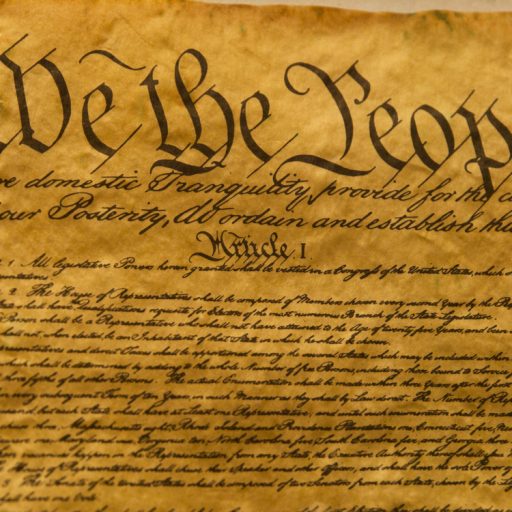 We the Peop
re domestic Tranquility, provide for the c
our Posterity, do ordain and establish thi
Article. I.
. 1. All legislative Powers herein granted shall be vested in a Congress of the United States, which
sentatives.
. 2. The House of Representatives shall be composed of Members chosen every second Year by the Peop
State shall have the Qualifications requisite for Electors of the most numerous Branch of the State Legislature.
Person shall be a Representative who shall not have attained to the Age of twenty five Years, and been
shall not, when elected, be an Inhabitant of that State in which he shall be chosen.
entatives and direct Taxes shall be apportioned among the several States which may be included within
which shall be determined by adding to the whole Number of free Persons, including those bound to Service
three fifths of all other Persons. The actual Enumeration shall be made within three Years after the first
every subsequent Term of ten Years, in such Manner as they shall by Law direct. The Number of Rep
and, but each State shall have at Least one Representative; and until such enumeration shall be made
three, Massachusetts eight, Rhode Island and Providence Plantations one, Connecticut five, New
one, Maryland six, Virginia ten, North Carolina five, South Carolina five, and Georgia three
vacancies happen in the Representation from any State, the Executive Authority thereof shall
House of Representatives shall chuse their Speaker and other Officers; and shall have the sole Power of
3. The Senate of the United States shall be composed of two Senators from each State, chosen by the Leg
shall have one Vote.